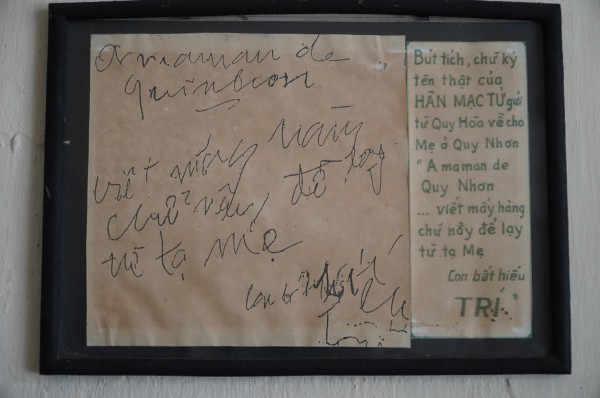 A maman de
Quinhon
viết mấy hàng
chữ nầy để lạy
từ tạ mẹ
Con bất hiếu
Trí
Bút tích, chữ ký
tên thật của
HÀN MẠC TỬ gửi
từ Quy Hòa về cho
Mẹ ở Quy Nhơn
" A maman de
Quy Nhơn
... viết mấy hàng
chữ nầy để lạy
từ tạ Mẹ
Con bất hiếu
TRÍ "